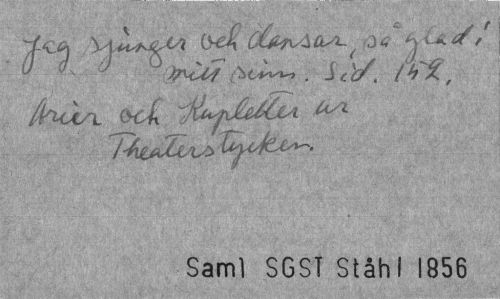 Jag sjunger och dansar, så glad i
mitt sinn. Sid. 152.
Arier och Kupletter ur
Theaterstycken.
Saml SGST Ståhl 1856